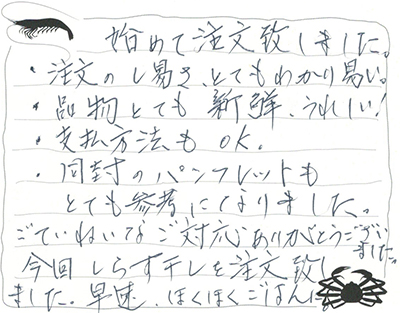 始めて注文致しました。
・注文のし易さ、とてもわかり易い。
・品物とても新鮮、うれしい!
・支払方法もOK.
・同封のパンフレットも
とても参考になりました。
ごていねいなご対応ありがとうござい
ました。
今回しらす干しを注文致し
ました。早速、ほくほくごはんに